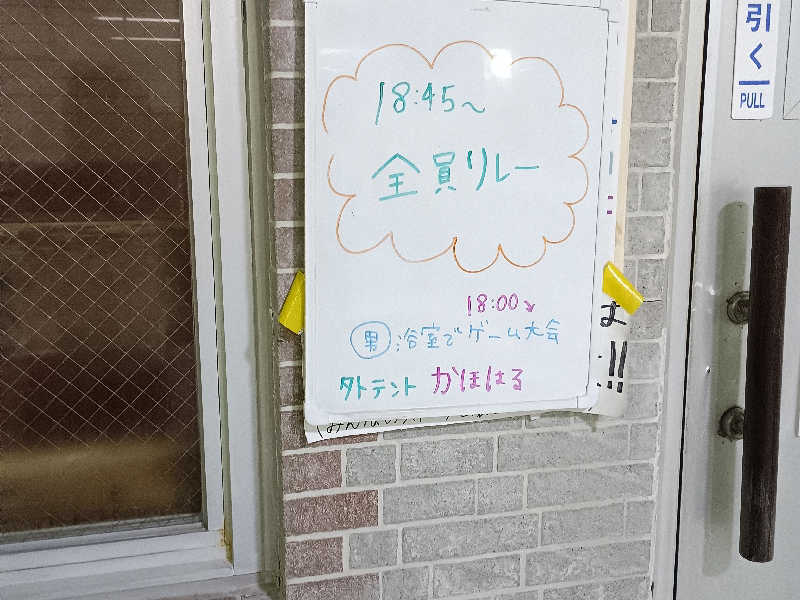 引く
PULL
18:45~
全員リレー
18:00↘
男 浴室でゲーム大会
外テント かほはる